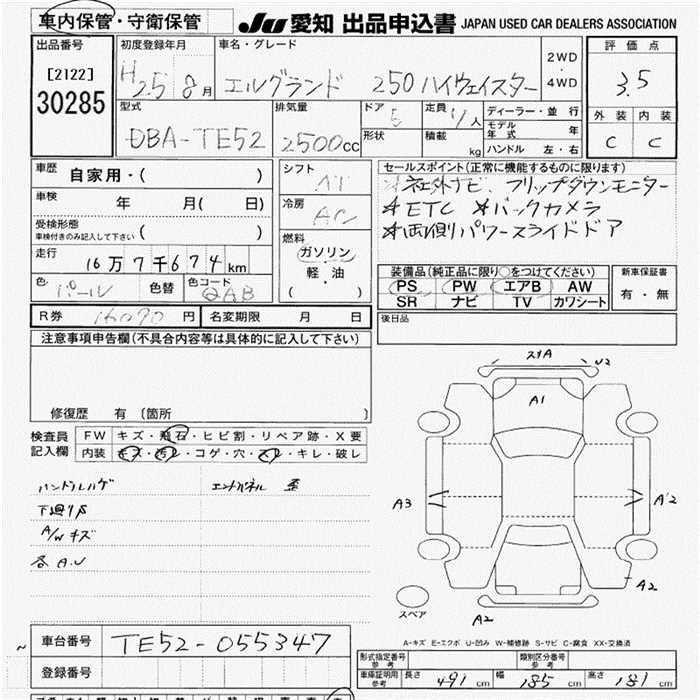 車内保管・守衛保管
JU 愛知 出品申込書 JAPAN USED CAR DEALERS ASSOCIATION
出品番号
[2122]
30285
初度登録年月
H25 8月
車名・グレード
エルグランド 250 ハイウェイスター
2WD
4WD
評価点
3.5
外装 内装
C C
型式
DBA-TE52
排気量
2500cc
ドア
5
定員
7人
形状
積載
kg
ディーラー・並行
モデル年式 年
ハンドル 左・右
車歴
自家用・( )
車検
年 月( 日)
受検形態
車検付きのみ記入して下さい ( )
走行
16万7千674km
色
パール
色替
色コード
QAB
シフト
AT
冷房
AC
燃料
ガソリン
軽・油
( )
セールスポイント(正常に機能するものに限ります)
☆社外ナビ、フリップダウンモニター
☆ETC ☆バックカメラ
☆両側パワースライドドア
装備品(純正品に限り○をつけてください)
PS PW エアB AW
SR ナビ TV カワシート
新車保証書
有・無
R券 16090円
名変期限 月 日
後日品
注意事項申告欄(不具合内容等は具体的に記入して下さい)
修復歴 有 (箇所 )
検査員
記入欄
FW キズ・飛石・ヒビ割・リペア跡・X要
内装 キズ・汚レ・コゲ・穴・スレ・キレ・破レ
ハンドルハゲ
エンドパネル 歪
下廻りS
A/W キズ
各A.U
スリA
U2
A1
A3
A'2
A2
A2
スペア
A-キズ E-エクボ U-凹み W-補修跡 S-サビ C-腐食 XX-交換済
車台番号
TE52-055347
登録番号
形式指定番号
参考
類別区分番号
参考
車庫証明用
参考
長さ 491cm
幅 185cm
高さ 181cm